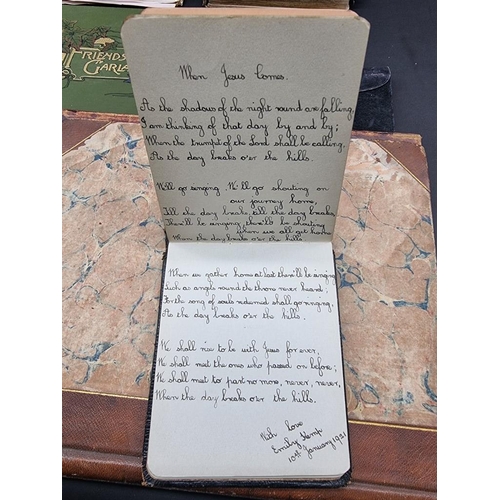 FRIENDS
GARLA
When Jesus Comes.
As the shadows of the night round are falling
I am thinking of that day by and by;
When the trumpet of the Lord shall be calling.
As the day breaks o'er the hills.
We'll go singing. We'll go shouting on
our journey home,
Till the day breaks, till the day breaks
There'll be singing, there'll be shouting
when we all get home
When the day breaks o'er the hills
When we gather home at last there'll be singing
Such as angels round the throne never heard.
For the song of souls redeemed shall go ringing.
As the day breaks o'er the hills.
We shall rise to be with Jesus for ever,
We shall meet the ones who passed on before;
We shall meet to part no more, never, never,
When the day breaks o'er the hills.
With love
Emily Kemp
10th January 1921